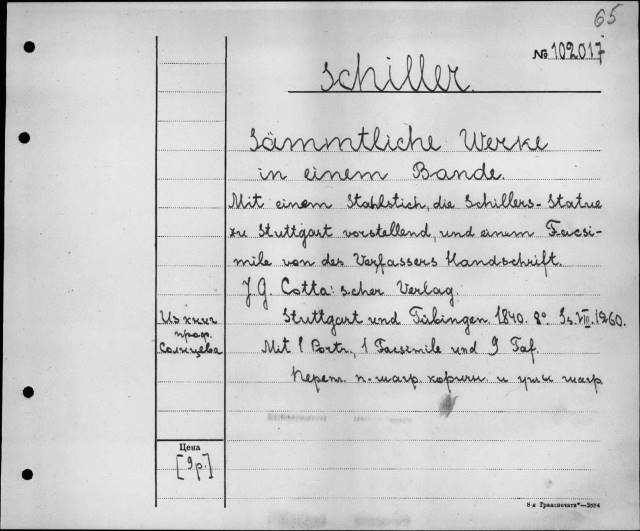 65
№ 102017
Schiller.
Sämmtliche Werke
in einem Bande.
Mit einem Stahlstich, die Schillers-Statue
zu Stuttgart vorstellend, und einem Facsi-
mile von des Verfassers Handschrift.
J. G. Cotta'scher Verlag.
Stuttgart und Tübingen. 1840. 8°. VIII. 1260.
Mit 1 Portr., 1 Facsimile und 9 Taf.
Из книг
проф.
Солнцева
Переп. п.-шагр. коричн. и углы шагр
Цена
[9 р.]
8-я Транспечать"—3884